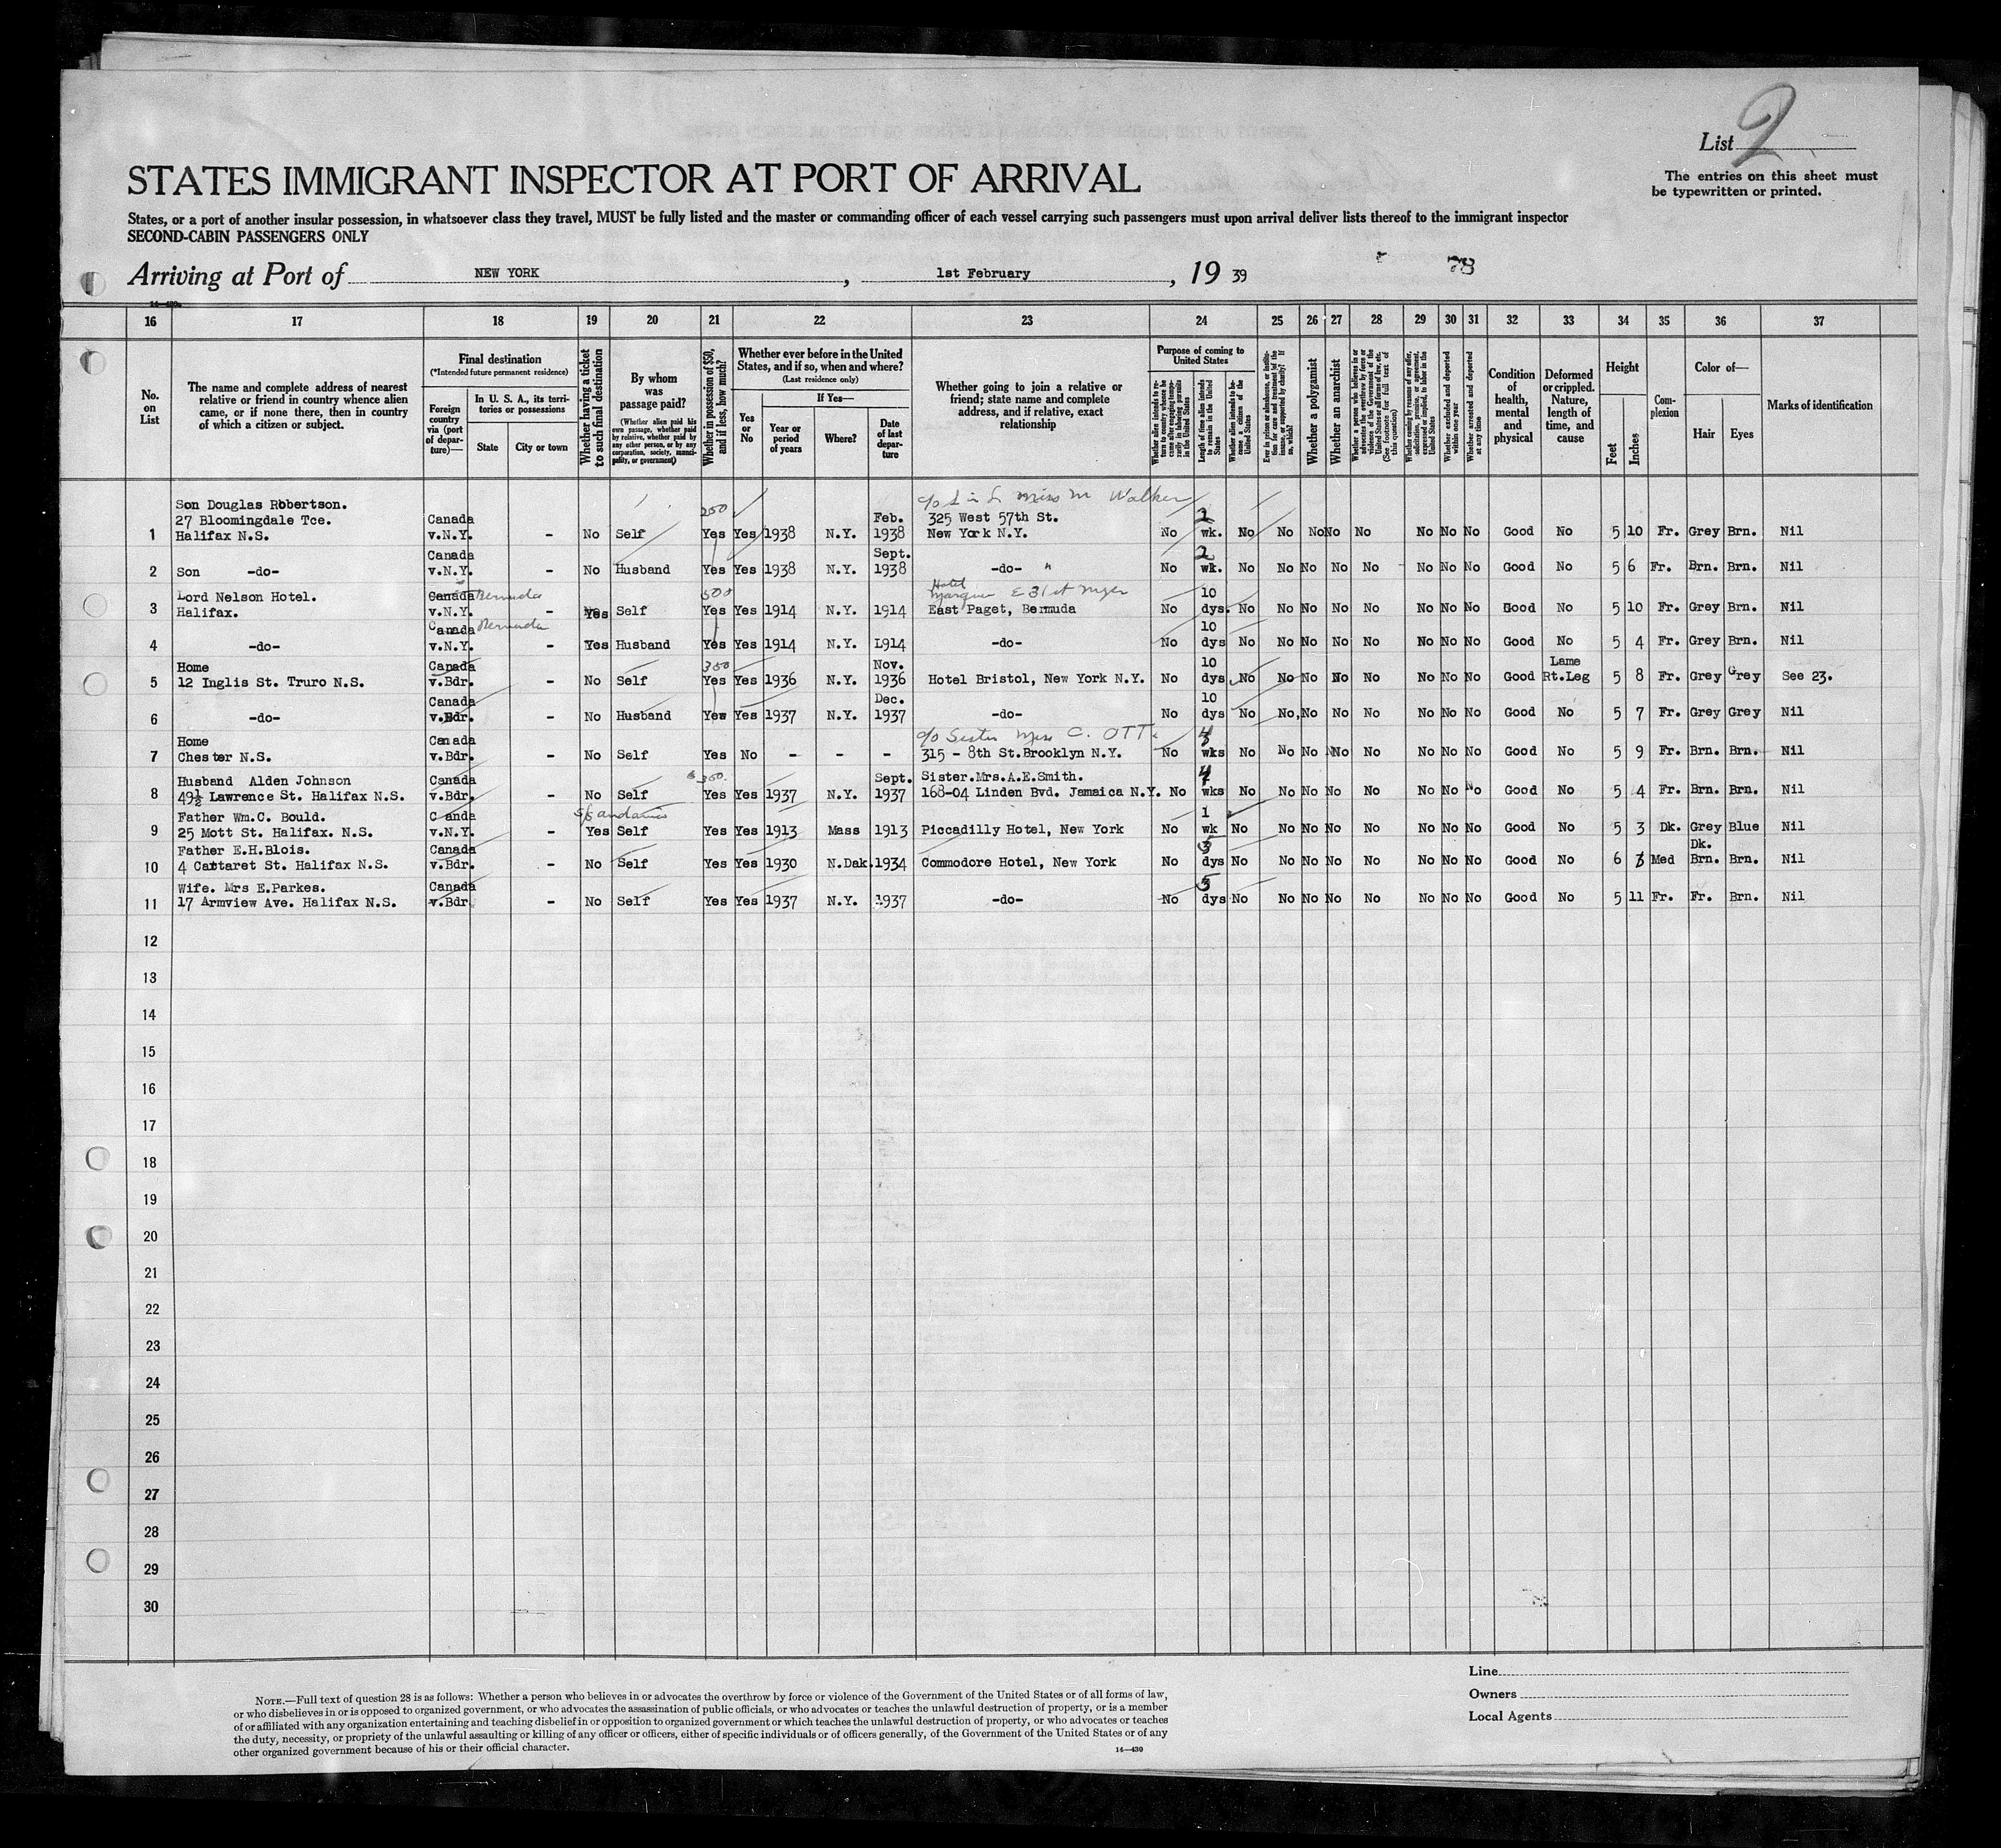 List 2
The entries on this sheet must
be typewritten or printed.
STATES IMMIGRANT INSPECTOR AT PORT OF ARRIVAL
States, or a port of another insular possession, in whatsoever class they travel, MUST be fully listed and the master or commanding officer of each vessel carrying such passengers must upon arrival deliver lists thereof to the immigrant inspector
SECOND-CABIN PASSENGERS ONLY
Arriving at Port of NEW YORK, 1st February, 19 39
16 17 18 19 20 21 22 23 24 25 26 27 28 29 30 31 32 33 34 35 36 37
No. on List
The name and complete address of nearest
relative or friend in country whence alien
came, or if none there, then in country
of which a citizen or subject.
Final destination
(*Intended future permanent residence)
Foreign country via (port of departure)—
In U. S. A., its territories or possessions
State
City or town
Whether having a ticket to such final destination
By whom was passage paid?
(Whether alien paid his own passage, whether paid by relative, whether paid by any other person, or by any corporation, society, municipality, or government)
Whether in possession of $50, and if less, how much?
Whether ever before in the United
States, and if so, when and where?
(Last residence only)
Yes or No
If Yes—
Year or period of years
Where?
Date of last departure
Whether going to join a relative or
friend; state name and complete
address, and if relative, exact
relationship
Purpose of coming to United States
Whether alien intends to return to country whence he came after engaging temporarily in laboring pursuits in the United States
Length of time alien intends to remain in the United States
Whether alien intends to become a citizen of the United States
Ever in prison or almshouse, or institution for care and treatment of the insane, or supported by charity? If so, which?
Whether a polygamist
Whether an anarchist
Whether a person who believes in or advocates the overthrow by force or violence of the Government of the United States or all forms of law, etc. (See footnote for full text of this question)
Whether coming by reasons of any offer, solicitation, promise, or agreement, expressed or implied, to labor in the United States
Whether excluded and deported within one year
Whether arrested and deported at any time
Condition of health, mental and physical
Deformed or crippled. Nature, length of time, and cause
Height
Feet
Inches
Complexion
Color of—
Hair
Eyes
Marks of identification
Son Douglas Robertson. 250 c/o Miss M Walker
27 Bloomingdale Tce. Canada Feb. 325 West 57th St. 2
1 Halifax N.S. v.N.Y. - No Self Yes Yes 1938 N.Y. 1938 New York N.Y. No wk. No No No No No No No No Good No 5 10 Fr. Grey Brn. Nil
Canada Sept. 2
2 Son -do- v.N.Y. - No Husband Yes Yes 1938 N.Y. 1938 -do- " No wk. No No No No No No No No Good No 5 6 Fr. Brn. Brn. Nil
Lord Nelson Hotel. Canada Bermuda 500 Hotel E 31st 10
3 Halifax. v.N.Y. - Yes Self Yes Yes 1914 N.Y. 1914 East Paget, Bermuda No dys. No No No No No No No No Good No 5 10 Fr. Grey Brn. Nil
Canada Bermuda 10
4 -do- v.N.Y. - Yes Husband Yes Yes 1914 N.Y. 1914 -do- No dys No No No No No No No No Good No 5 4 Fr. Grey Brn. Nil
Home Canada 350 Nov. 10 Lame
5 12 Inglis St. Truro N.S. v.Bdr. - No Self Yes Yes 1936 N.Y. 1936 Hotel Bristol, New York N.Y. No dys No No No No No No No No Good Rt.Leg 5 8 Fr. Grey Grey See 23.
Canada Dec. 10
6 -do- v.Bdr. - No Husband Yes Yes 1937 N.Y. 1937 -do- No dys No No, No No No No No No Good No 5 7 Fr. Grey Grey Nil
Home Canada c/o Sister Miss C. OTT.
7 Chester N.S. v.Bdr. - No Self Yes No - - - 315 - 8th St.Brooklyn N.Y. No wks No No No No No No No No Good No 5 9 Fr. Brn. Brn. Nil
Husband Alden Johnson Canada $350. Sept. Sister.Mrs.A.E.Smith. 4
8 49½ Lawrence St. Halifax N.S. v.Bdr. - No Self Yes Yes 1937 N.Y. 1937 168-04 Linden Bvd. Jamaica N.Y. No wks No No No No No No No No Good No 5 4 Fr. Brn. Brn. Nil
Father Wm.C. Bould. Canada 1
9 25 Mott St. Halifax. N.S. v.N.Y. - Yes Self Yes Yes 1913 Mass 1913 Piccadilly Hotel, New York No wk No No No No No No No No Good No 5 3 Dk. Grey Blue Nil
Father E.H.Blois. Canada 5 Dk.
10 4 Cartaret St. Halifax N.S. v.Bdr. - No Self Yes Yes 1930 N.Dak. 1934 Commodore Hotel, New York No dys No No No No No No No No Good No 6 Med Brn. Brn. Nil
Wife. Mrs E.Parkes. Canada 5
11 17 Armview Ave. Halifax N.S. v.Bdr. - No Self Yes Yes 1937 N.Y. 1937 -do- No dys No No No No No No No No Good No 5 11 Fr. Fr. Brn. Nil
12
13
14
15
16
17
18
19
20
21
22
23
24
25
26
27
28
29
30
Line
Owners
Local Agents
NOTE.—Full text of question 28 is as follows: Whether a person who believes in or advocates the overthrow by force or violence of the Government of the United States or of all forms of law,
or who disbelieves in or is opposed to organized government, or who advocates the assassination of public officials, or who advocates or teaches the unlawful destruction of property, or is a member
of or affiliated with any organization entertaining and teaching disbelief in or opposition to organized government or which teaches the unlawful destruction of property, or who advocates or teaches
the duty, necessity, or propriety of the unlawful assaulting or killing of any officer or officers, either of specific individuals or of officers generally, of the Government of the United States or of any
other organized government because of his or their official character.
14—430